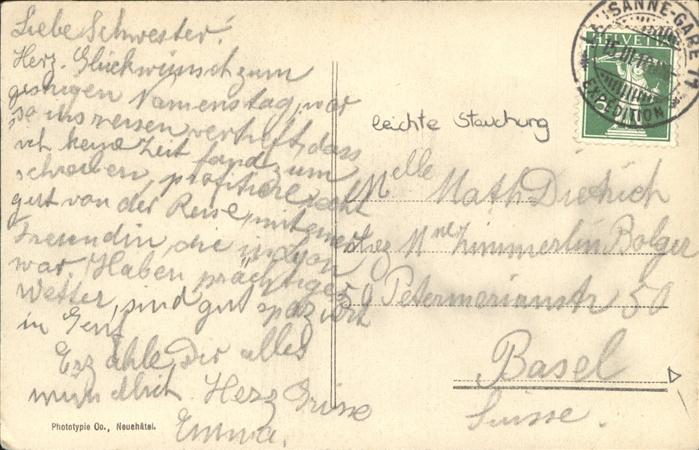 Liebe Schwester!
Herz. Glückwunsch zum
gestrigen Namenstag, war
so ins reisen vertieft, dass
ich keine Zeit fand zum
schreiben, profitiere recht
gut von der Reise, mit einer
Freundin, die in Lyon
war. Haben prächtiges
Wetter, sind gut spaziert
in Genf
Erzähle Dir alles
mündlich. Herz Grüsse
Emma.
Phototypie Co., Neuchâtel.
leichte Stauchung
LAUSANNE-GARE
HELVETIA
5
EXPEDITION
Melle Math Dietrich
chez Mme Zimmerlin Bolger
50 Petersmerianstr 50
Basel
Suisse.